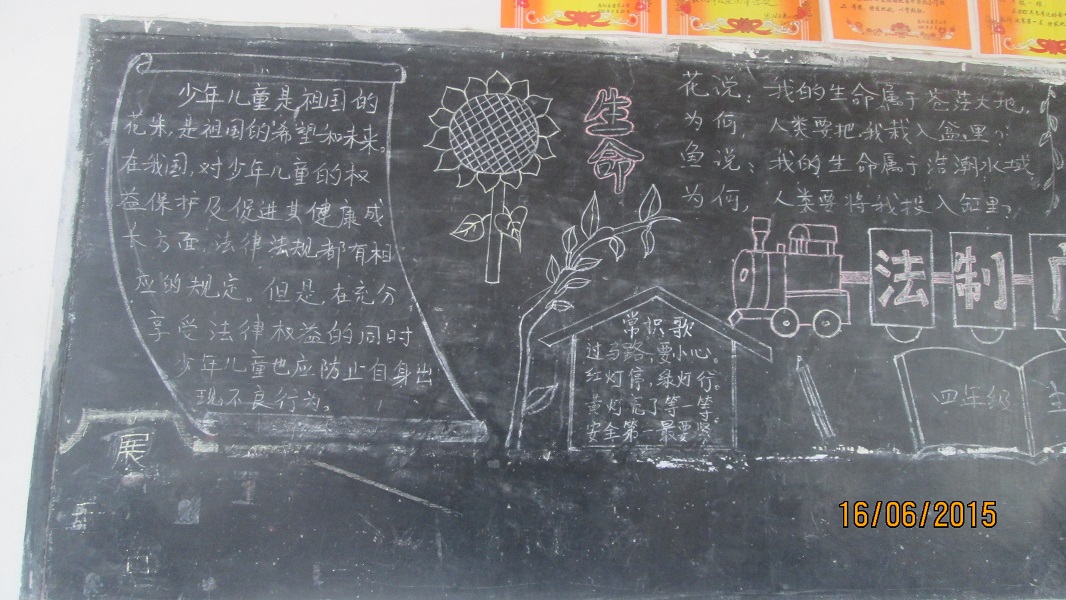 少年儿童是祖国的
花朵,是祖国的希望和未来。
在我国,对少年儿童的权
益保护及促进其健康成
长方面,法律法规都有相
应的规定。但是,在充分
享受法律权益的同时
少年儿童也应防止自身出
现不良行为。
展
生命
花说:我的生命属于苍茫大地,
为何,人类要把我栽入盆里?
鱼说:我的生命属于浩潮水域
为何,人类要将我投入缸里?
法制
常识歌
过马路,要小心。
红灯停,绿灯行。
黄灯亮了等一等。
安全第一最要紧
四年级
16/06/2015